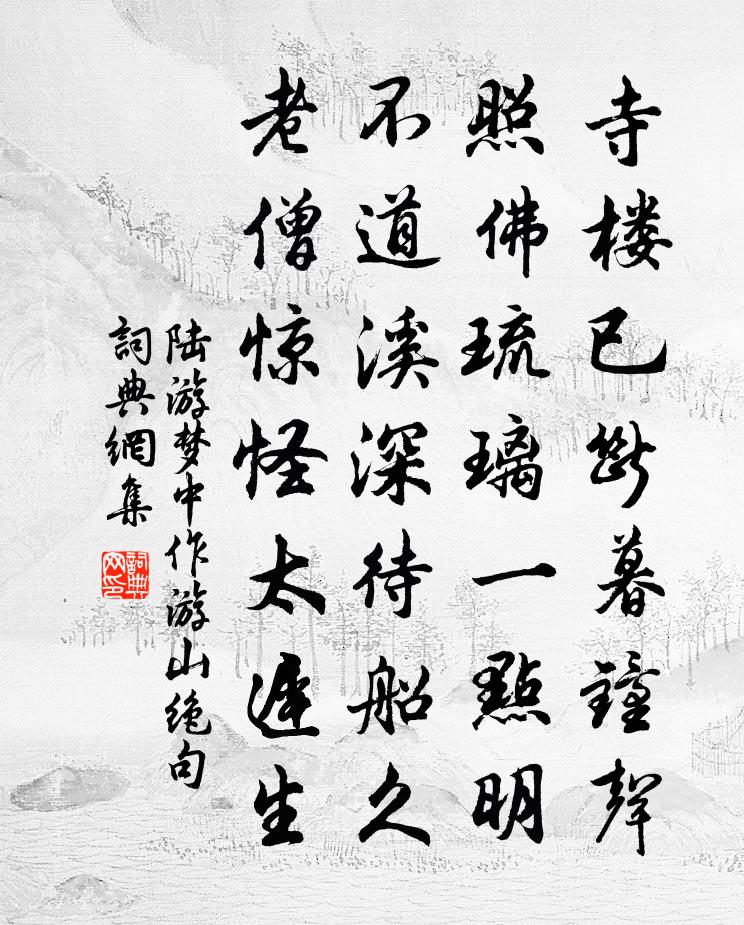 寺楼已断暮鐘聲
照佛琉璃一點明
不道溪深待船久
老僧惊怪太遲生
陆游梦中作游山绝句
詞典網集
詞典网印